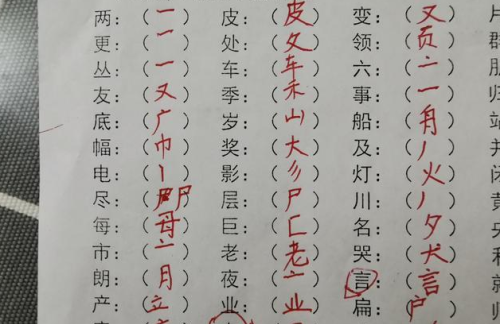 两：（一） 皮：（皮） 变：（又）
更：（一） 处：（夂） 领：（页）
丛：（一） 车：（车） 六：（亠）
友：（又） 季：（禾） 事：（一）
底：（广） 岁：（山） 船：（舟）
幅：（巾） 奖：（大） 及：（丿）
电：（丨） 影：（彡） 灯：（火）
尽：（尸） 层：（尸） 川：（丿）
每：（母） 巨：（匚） 名：（夕）
市：（亠） 老：（老） 哭：（犬）
朗：（月） 夜：（亠） 言：（言）
产：（立） 业：（业） 扁：（户）